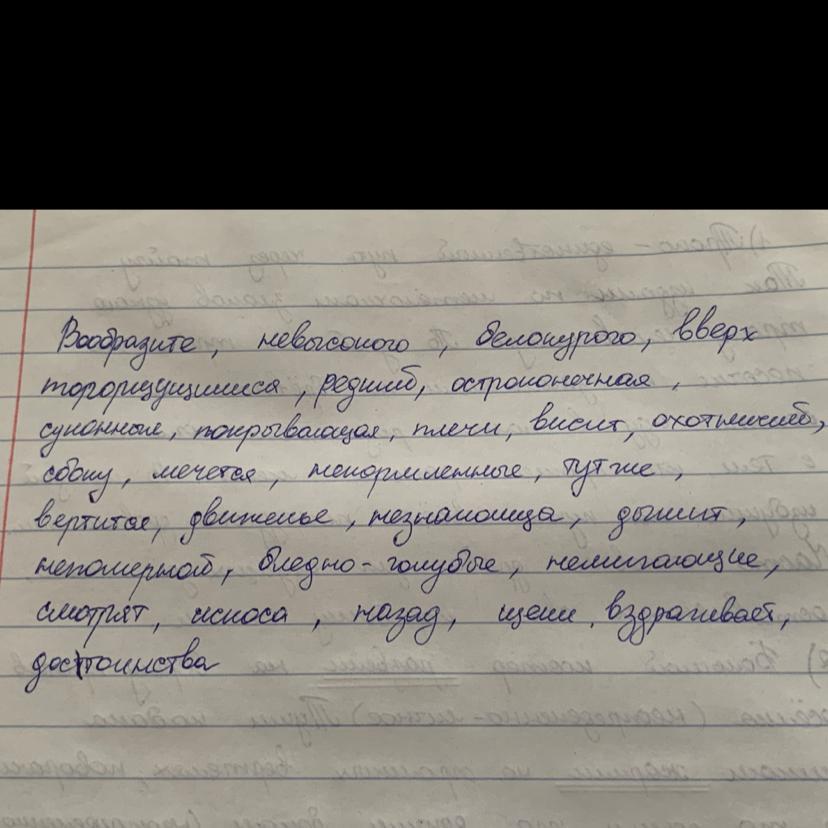 Вообразите, невысокого, белокурого, вверх
торорщущимися, редкий, остроконечная,
суконные, покрывающая, плечи, висит, охотничий,
сбоку, мечется, некормленные, тут же,
вертится, движенье, незнакомца, дышит,
непомерной, бледно-голубые, немигающие,
смотрят, искоса, назад, щеки, вздрагивает,
достоинства